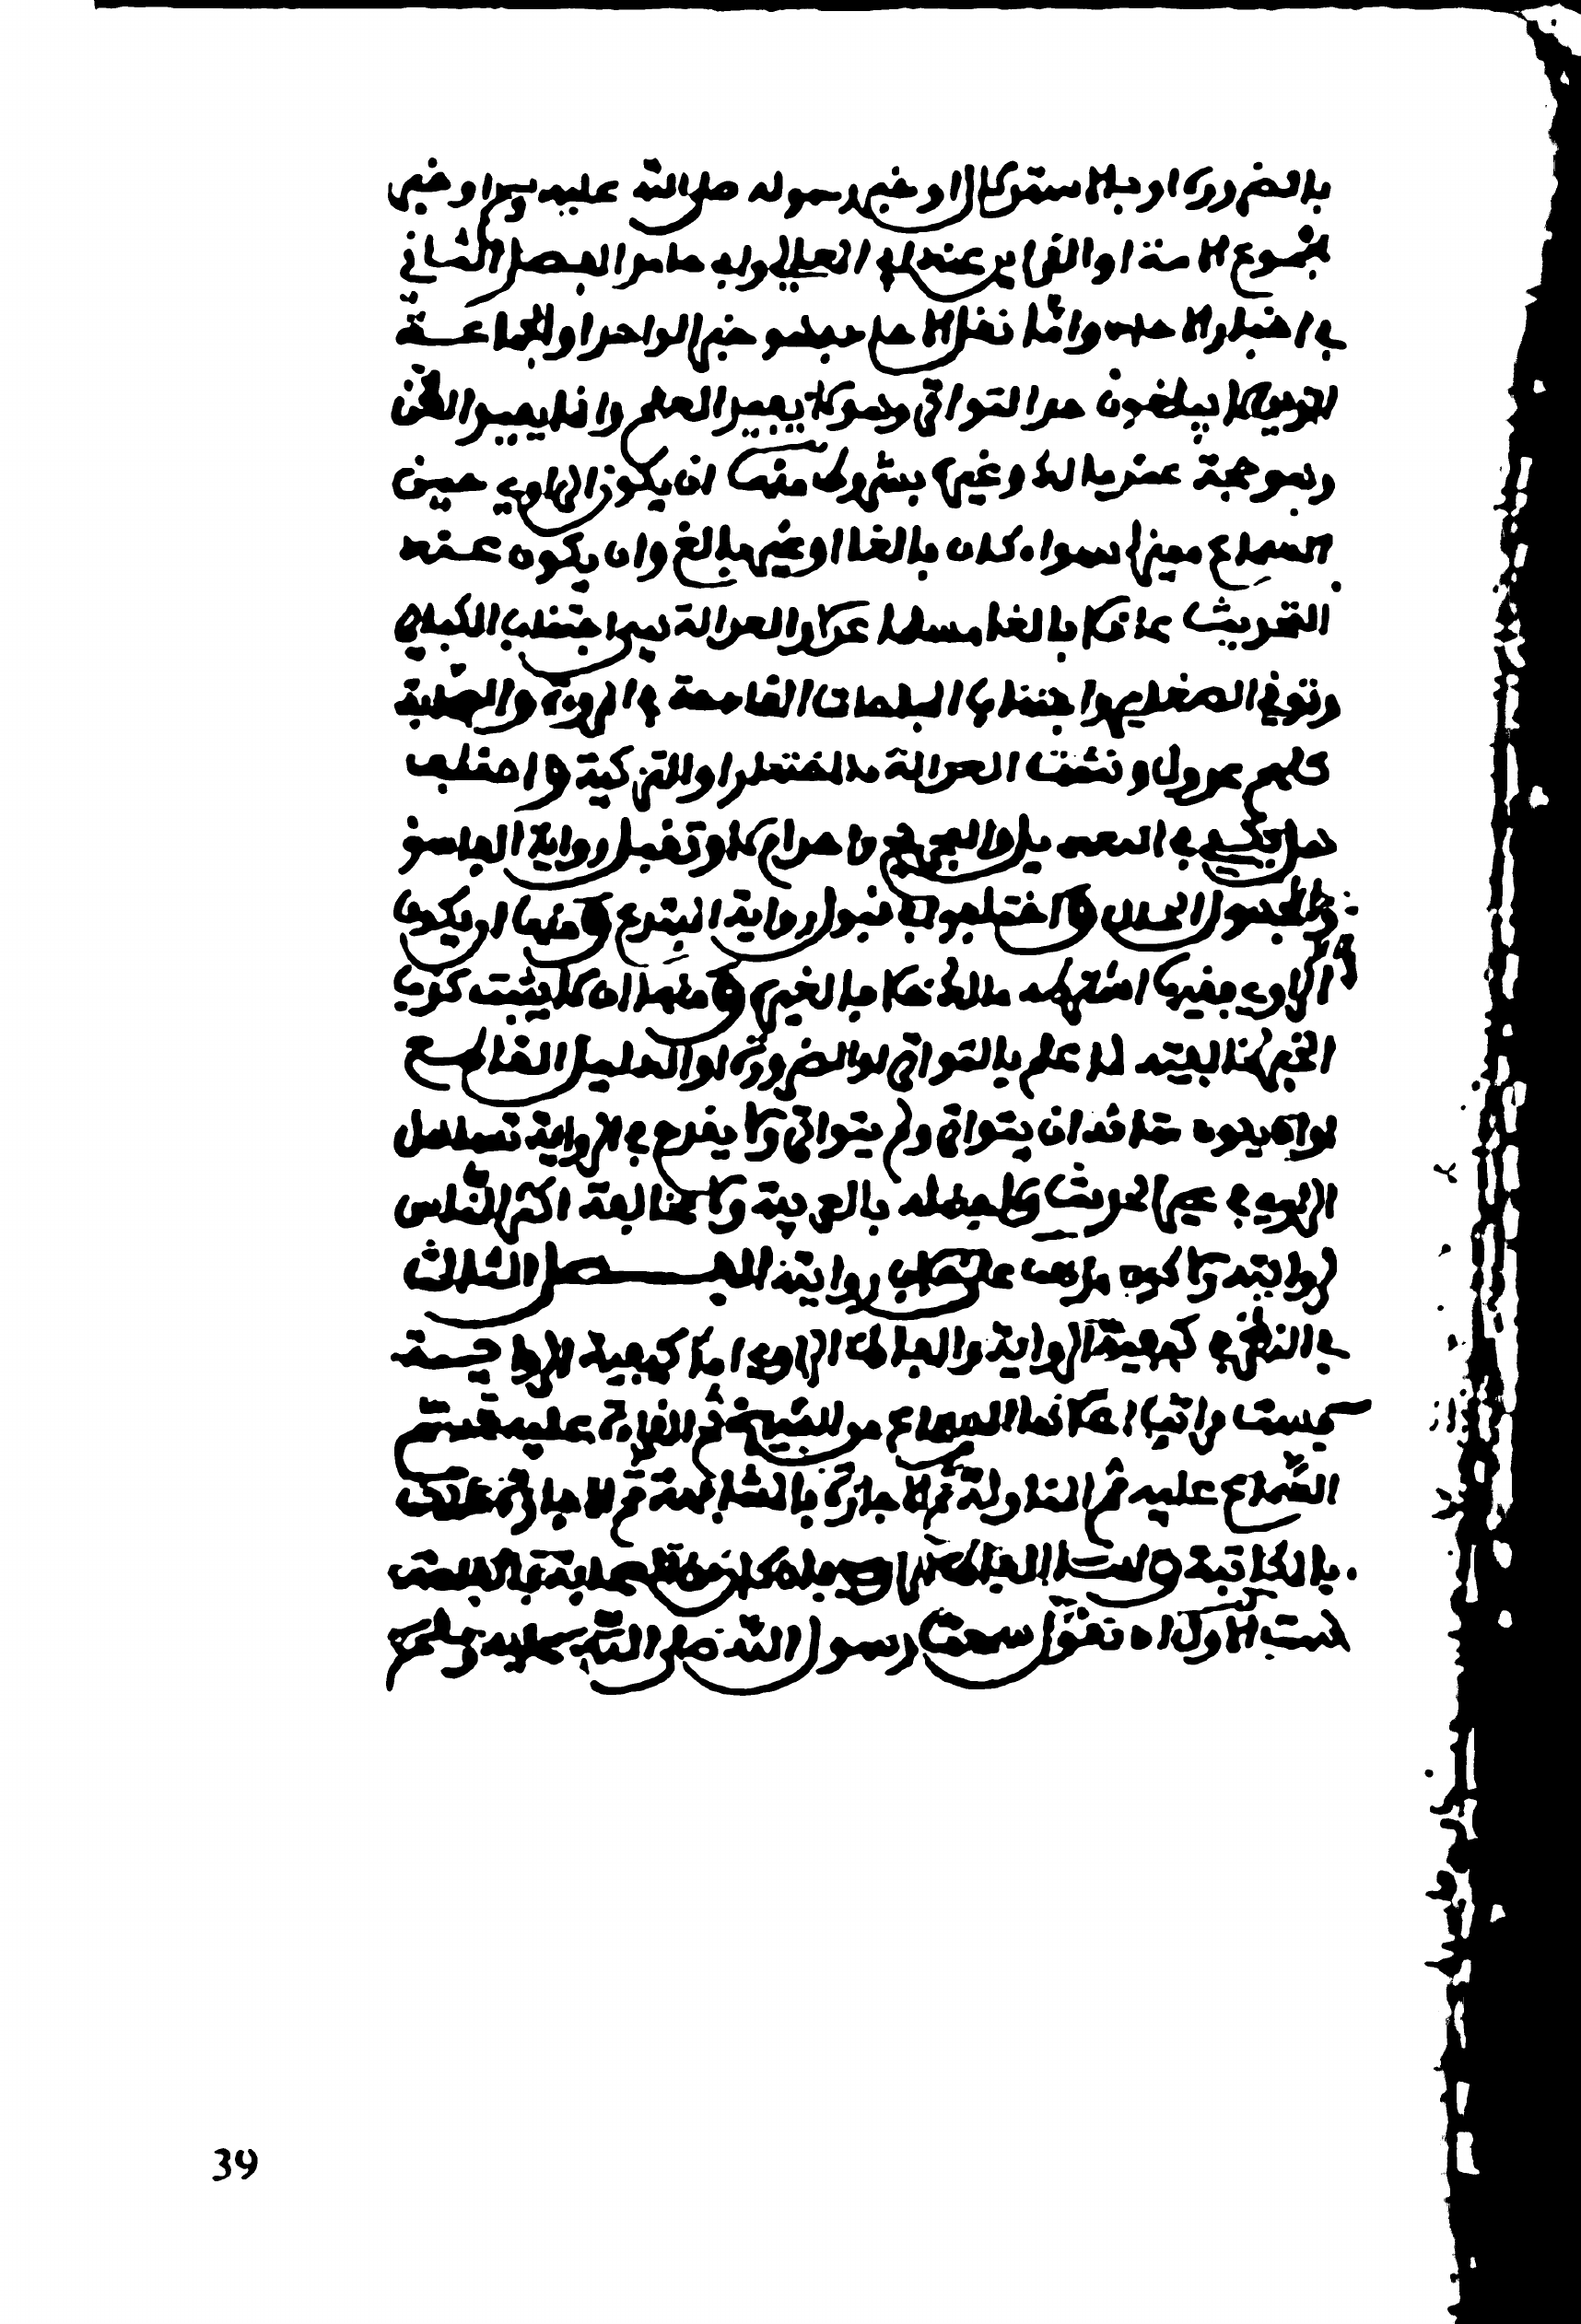 بالضرورة او بالاستدلال او خبر رسوله صلى الله عليه وسلم او خبر
مجموع الامة او القراين عند ابي المعالي وابي حامد الفصل الثاني
في اخبار الاحاد واما نقل الاحاد فهو خبر الواحد او الجماعة
الذين لا يبلغون حد التواتر وهو لا يفيد العلم وانما يفيد الظن
وهو حجة عند مالك وغيره بشروط منها ان يكون الراوي حين
السماع مميزا سواء كان بالغا او غير بالغ وان يكون عند
التحديث عاقلا بالغا مسلما عدلا والعدالة هي اجتناب الكباير
وتوقي الصغاير واجتناب المباحات القادحة في المروة والصحابة
كلهم عدول وتثبت العدالة بالاختبار او بالتزكية واختلف
هل يكفي في التعديل والتجريح واحد ام لا ولا تقبل رواية الفاسق
ولا المجهول الحال واختلف في قبول رواية المبتدع ومنها ان يكون
الراوي فقيها اشترطه مالك خلافا لغيره ومنها ان لا يثبت كذب
الخبر لمخالفته لما علم بالتواتر او الضرورة او الدليل القاطع
او ان يكون شانه ان يتواتر ولم يتواتر ولا يقدح في الرواية تساهل
الراوي في غير الحديث ولا جهله بالعربية ولا مخالفة اكثر الناس
لروايته ولا كون مذهبه على خلاف روايته الفصل الثالث
في النظر في كيفية الرواية والفاظ الراوي اما كيفية الرواية
فست مراتب اعلاها السماع من الشيخ ثم القراءة عليه ثم
السماع عليه ثم المناولة ثم الاجازة بالمشافهة ثم الاجازة
بالمكاتبة واما الفاظ الراوي
ست الاول ان تقول سمعت رسول الله صلى الله عليه وسلم
39